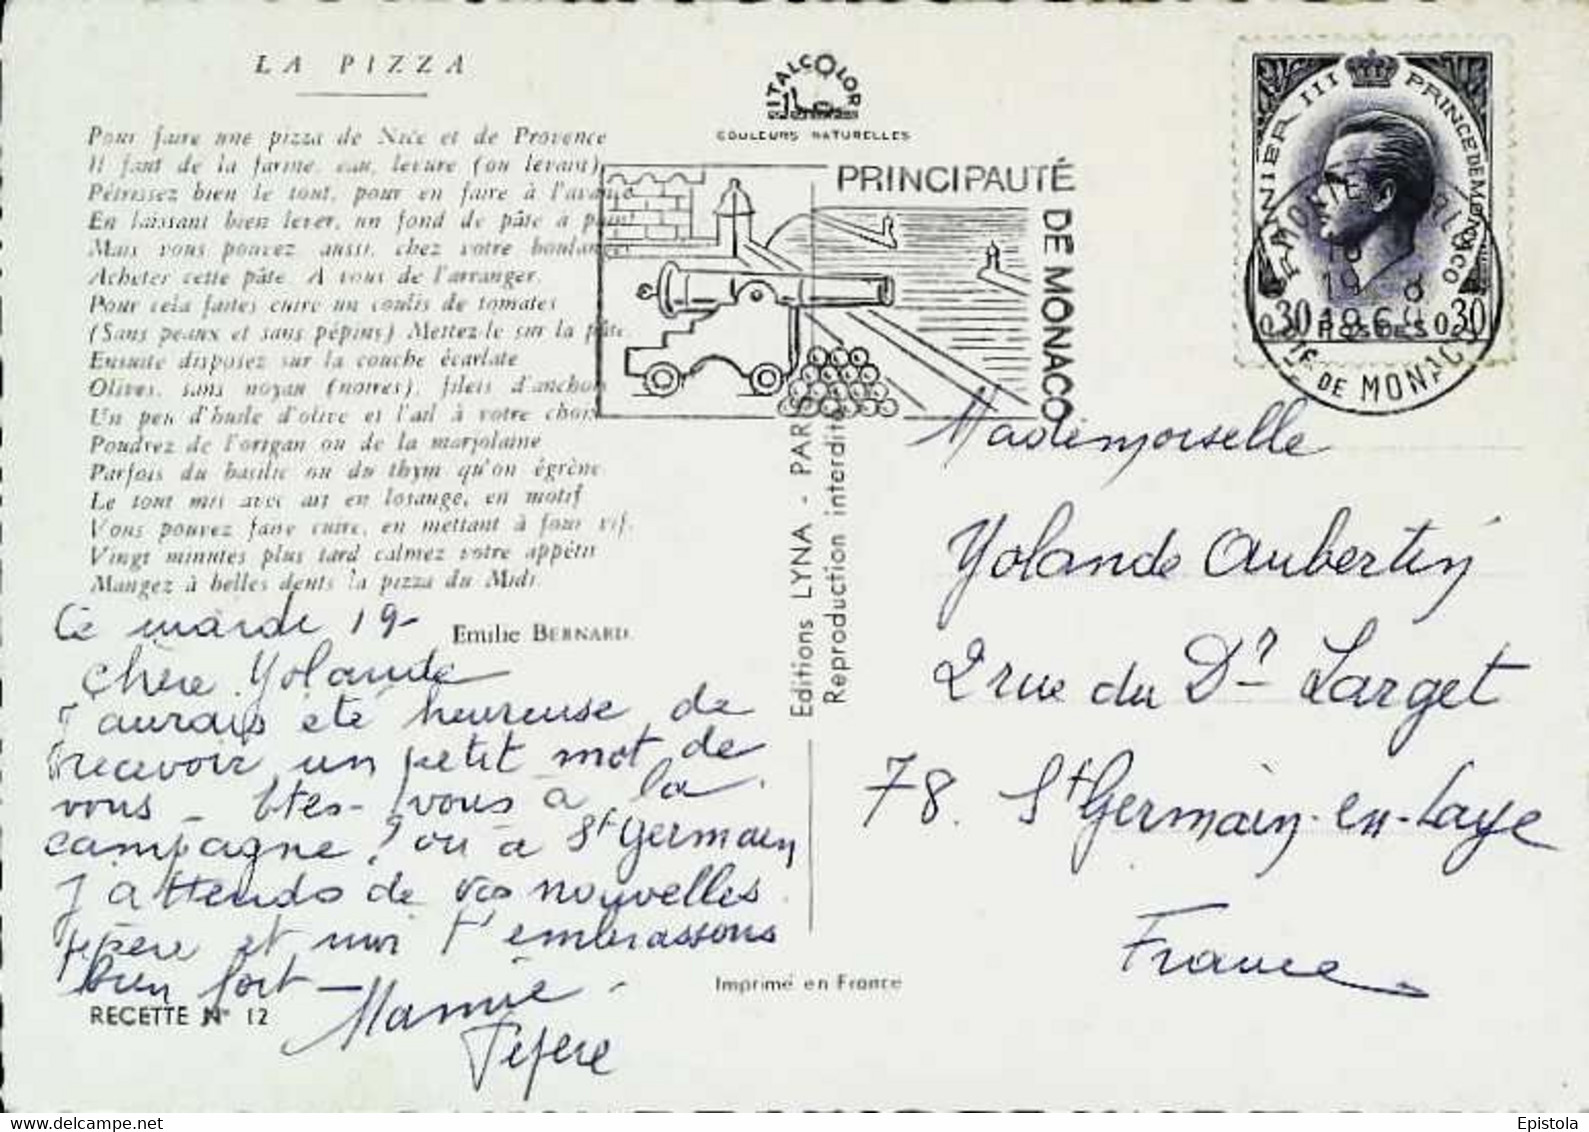 LA PIZZA
Pour faire une pizza de Nice et de Provence
Il faut de la farine, eau, levure (ou levain),
Pétrissez bien le tout, pour en faire à l'avance
En laissant bien lever, un fond de pâte à point
Mais vous pouvez aussi, chez votre boulanger
Acheter cette pâte. A vous de l'arranger.
Pour cela faites cuire un coulis de tomates
(Sans peaux et sans pépins) Mettez-le sur la pâte.
Ensuite disposez sur la couche écarlate
Olives, sans noyau (noires), filets d'anchois
Un peu d'huile d'olive et l'ail à votre choix
Poudrez de l'origan ou de la marjolaine
Parfois du basilic ou du thym qu'on égrène.
Le tout mis avec art en losange, en motif
Vous pouvez faire cuire, en mettant à four vif.
Vingt minutes plus tard calmez votre appétit
Mangez à belles dents la pizza du Midi.
Emilie BERNARD.
Ce mardi 19-
Chère Yolande
J'aurais été heureuse de
recevoir un petit mot de
vous - Etes-vous à la
campagne ? ou à St Germain
J'attends de vos nouvelles.
pépère et moi t'embrassons
bien fort -
Mamie -
Pépère
RECETTE N° 12
ITALCOLOR
COULEURS NATURELLES
PRINCIPAUTÉ
DE MONACO
Editions LYNA - PARIS
Reproduction interdite
Imprimé en France
RAINIER III PRINCE DE MONACO
0,30 POSTES 0,30
MONTE-CARLO
PTE DE MONACO
Mademoiselle
Yolande Aubertin
2 rue du Dr Larget
78. St Germain-en-Laye
France
Epistola